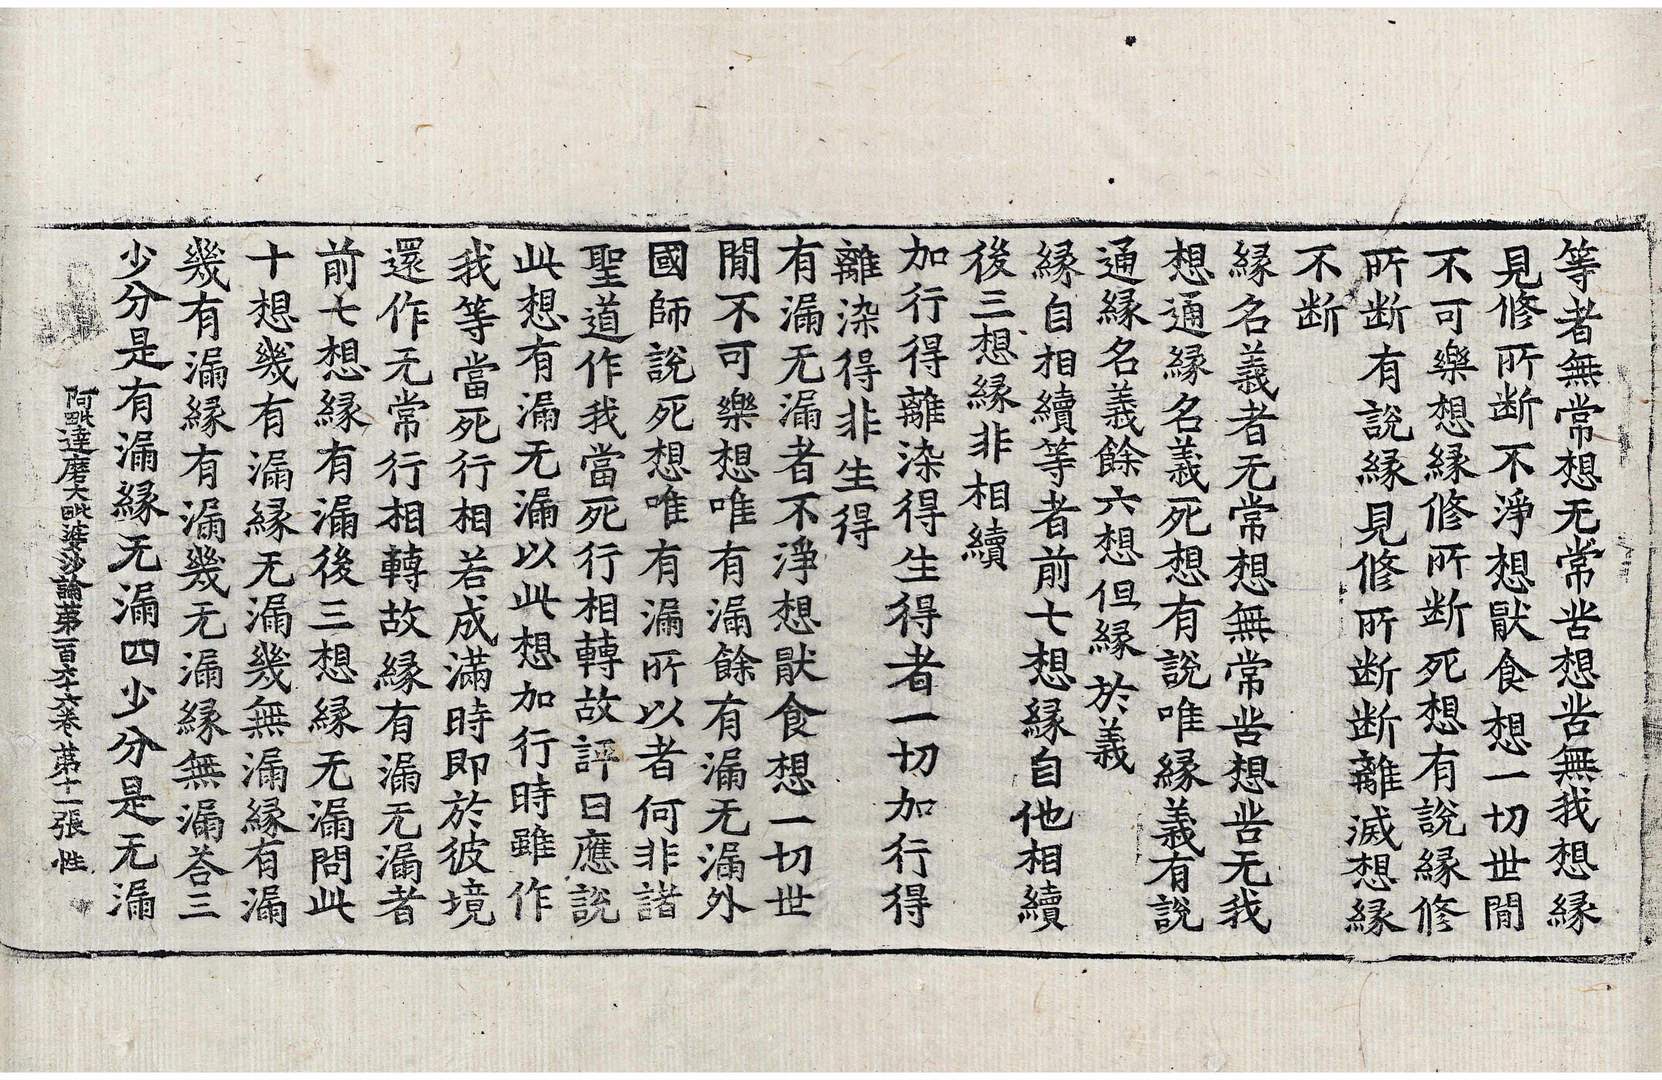 等者無常想无常苦想苦無我想緣
見修所斷不淨想猒食想一切世閒
不可樂想緣修所斷死想有說緣修
所斷有說緣見修所斷斷離滅想緣
不斷
緣名義者无常想無常苦想苦无我
想通緣名義死想有說唯緣義有說
通緣名義餘六想但緣於義
緣自相續等者前七想緣自他相續
後三想緣非相續
加行得離染得生得者一切加行得
離染得非生得
有漏无漏者不淨想猒食想一切世
閒不可樂想唯有漏餘有漏无漏外
國師說死想唯有漏所以者何非諸
聖道作我當死行相轉故評曰應說
此想有漏无漏以此想加行時雖作
我等當死行相若成滿時即於彼境
還作无常行相轉故緣有漏无漏者
前七想緣有漏後三想緣无漏問此
十想幾有漏緣无漏幾無漏緣有漏
幾有漏緣有漏幾无漏緣無漏荅三
少分是有漏緣无漏四少分是无漏
阿毗達磨大毗婆沙論第一百六十六卷 第十一張 性